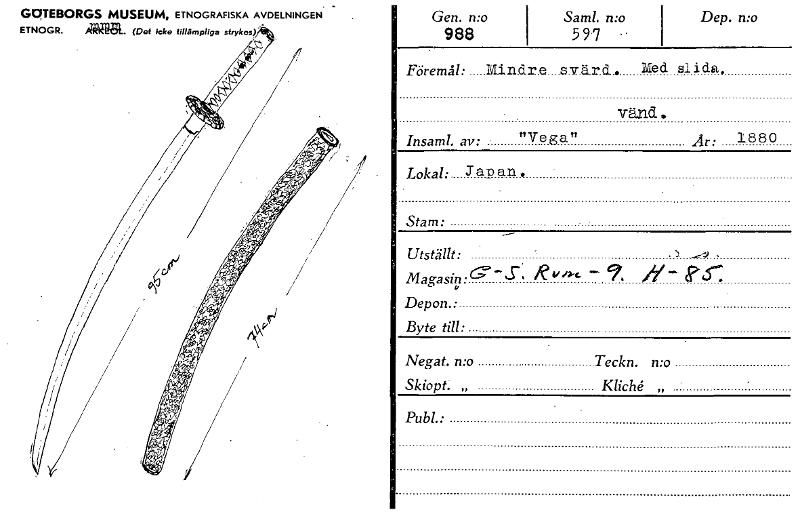 GÖTEBORGS MUSEUM, ETNOGRAFISKA AVDELNINGEN
ETNOGR. ARKEOL. (Det icke tillämpliga strykes)
95cm
74cm
Gen. n:o Saml. n:o Dep. n:o
988 597
Föremål: Mindre svärd. Med slida.
vänd.
Insaml. av: "Vega" År: 1880
Lokal: Japan.
Stam:
Utställt:
Magasin: G-S. Rum-9. H-85.
Depon.:
Byte till:
Negat. n:o Teckn. n:o
Skiopt. „ Kliché „
Publ.: